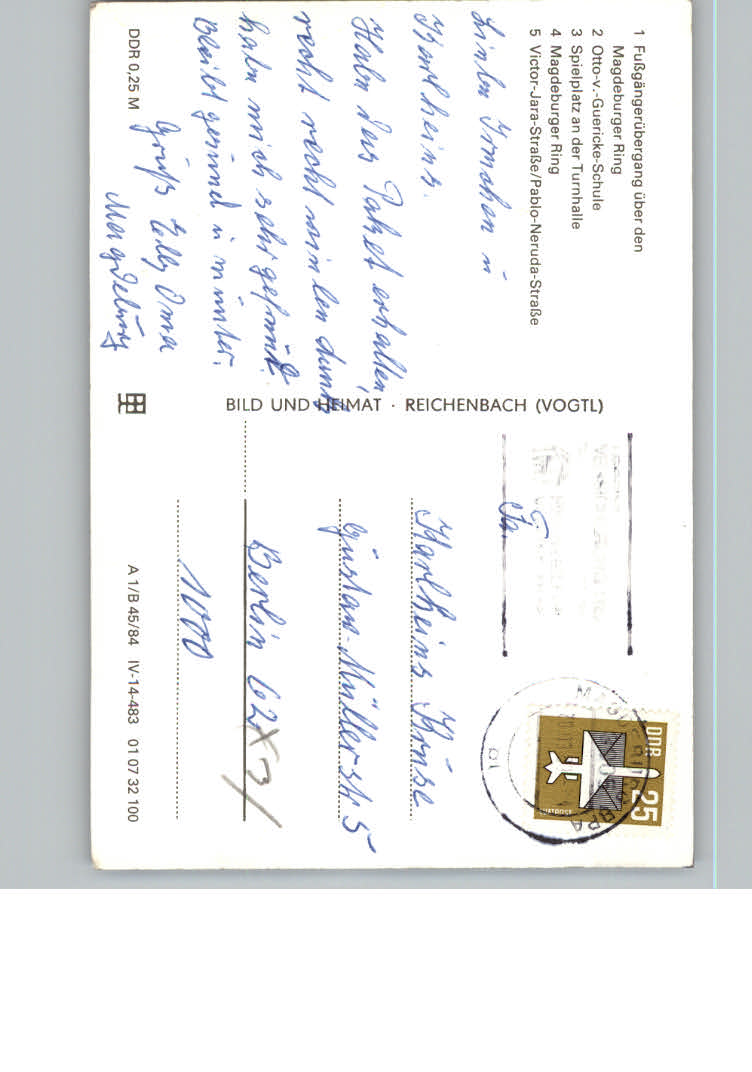 1 Fußgängerübergang über den
Magdeburger Ring
2 Otto-v.-Guericke-Schule
3 Spielplatz an der Turnhalle
4 Magdeburger Ring
5 Victor-Jara-Straße/Pablo-Neruda-Straße
Liebes Irmchen u
Karlheinz.
Habe das Paket erhalten,
recht recht vielen Dank
habe mich sehr gefreut.
Bleibt gesund u munter.
Gruß Elly Oma
Magdeburg
DDR 0,25 M
BILD UND HEIMAT · REICHENBACH (VOGTL)
Fa.
Karlheinz Kruse
Gustav-Müller-str 5
Berlin 62
1000
A 1/B 45/84 IV-14-483 01 07 32 100
DDR 25
LUFTPOST